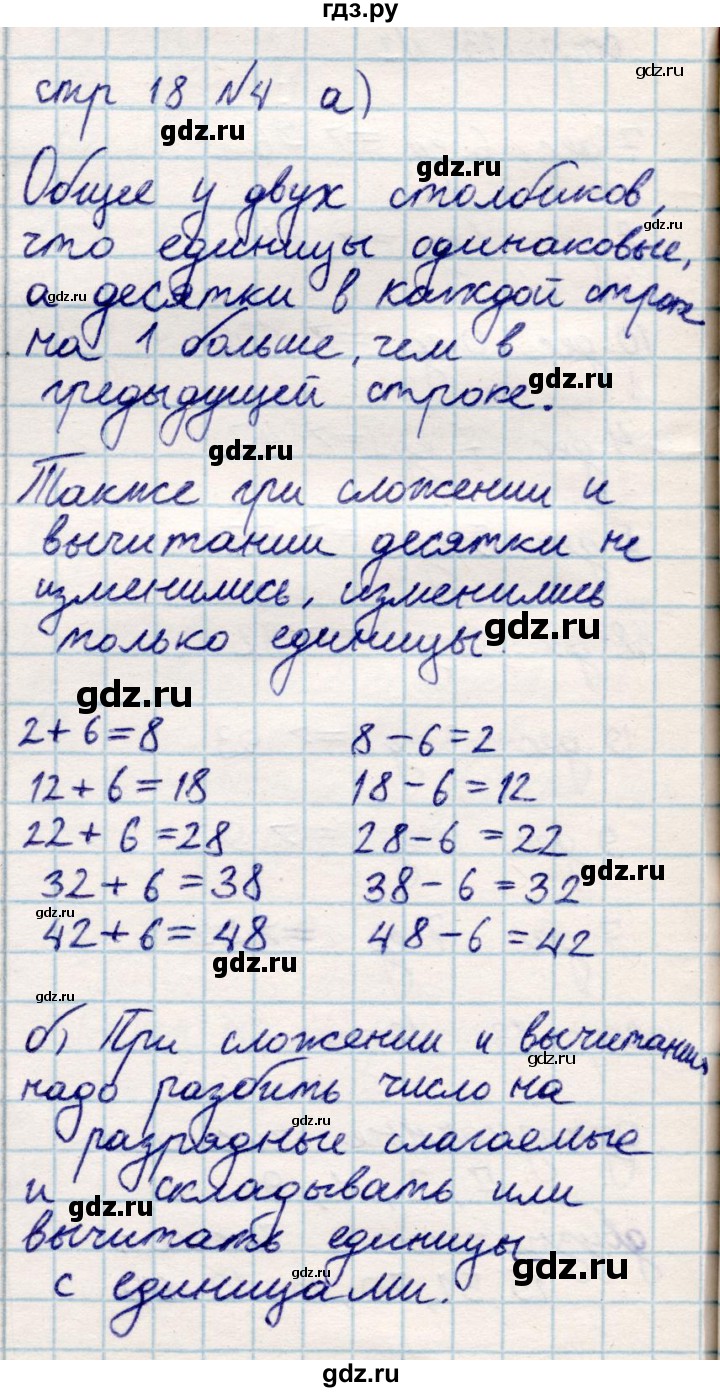 гдз.ру
gdz.ru
стр 18 №4 а)
gdz.ru
Общее у двух столбиков,
gdz.ru
что единицы одинаковые,
а десятки в каждой строке
gdz.ru
на 1 больше, чем в
предыдущей строке.
gdz.ru
gdz.ru
Также при сложении и
вычитании десятки не
изменились, изменились
только единицы.
gdz.ru
gdz.ru
2+6=8 8-6=2
12+6=18 18-6=12
22+6=28 28-6=22
32+6=38 38-6=32
gdz.ru
gdz.ru
42+6=48 48-6=42
gdz.ru
gdz.ru
б) При сложении и вычитании
gdz.ru
надо разбить число на
gdz.ru
разрядные слагаемые
и складывать или
gdz.ru
вычитать единицы
gdz.ru
gdz.ru
с единицами.
gdz.ru